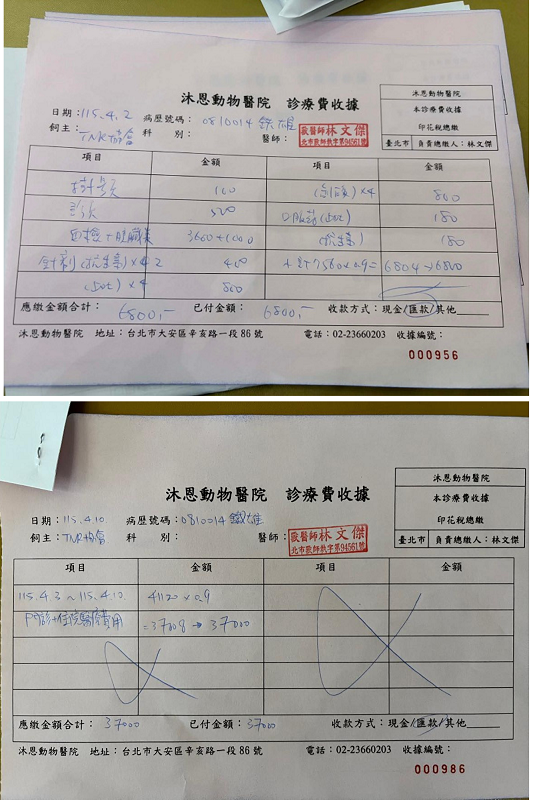 沐恩動物醫院 診療費收據
沐恩動物醫院
本診療費收據
印花稅總繳
臺北市 負責總繳人：林文傑
日期：115.4.2 病歷號碼：0810014 鐵雄
飼主：TNR協會 科 別： 醫師：獸醫師林文傑
項目 金額 項目 金額
100 ×4 800
500 口服藥 180
血檢 3660+1000 (抗生素) 180
針劑(抗生素)×2 400 7560×0.9=6804→6800
×4 800
應繳金額合計：6800,- 已付金額：6800,- 收款方式：現金/匯款/其他
沐恩動物醫院 地址：台北市大安區辛亥路一段86號 電話：02-23660203 收據編號：
000956
沐恩動物醫院 診療費收據
沐恩動物醫院
本診療費收據
印花稅總繳
臺北市 負責總繳人：林文傑
日期：115.4.10 病歷號碼：0810014 鐵雄
飼主：TNR協會 科 別： 醫師：獸醫師林文傑
項目 金額 項目 金額
115.4.3~115.4.10 41120×0.9
門診+住院醫療費用 =37008→37000
應繳金額合計：37000 已付金額：37000 收款方式：現金/匯款/其他
沐恩動物醫院 地址：台北市大安區辛亥路一段86號 電話：02-23660203 收據編號：
000986